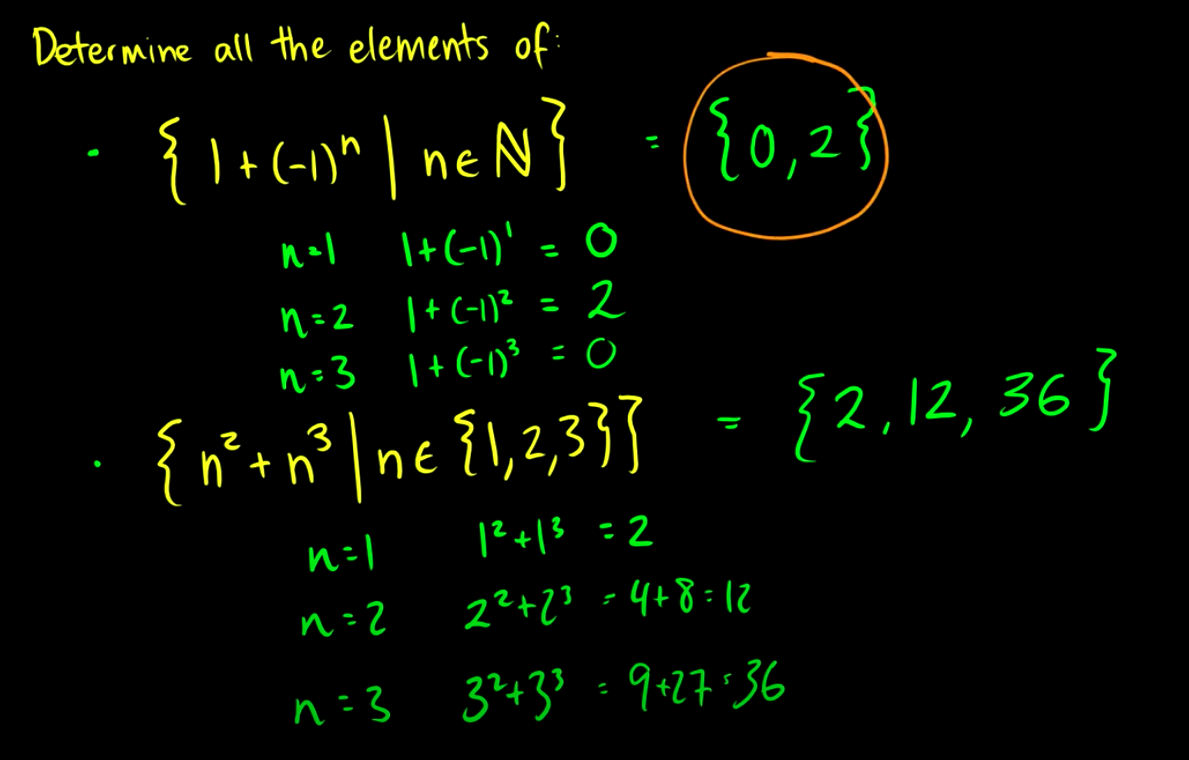 Determine all the elements of:
· {1 + (-1)ⁿ | n ∈ ℕ} = {0, 2}
n=1 1+(-1)¹ = 0
n=2 1+(-1)² = 2
n=3 1+(-1)³ = 0
· {n² + n³ | n ∈ {1,2,3}} = {2, 12, 36}
n=1 1²+1³ = 2
n=2 2²+2³ = 4+8=12
n=3 3²+3³ = 9+27=36